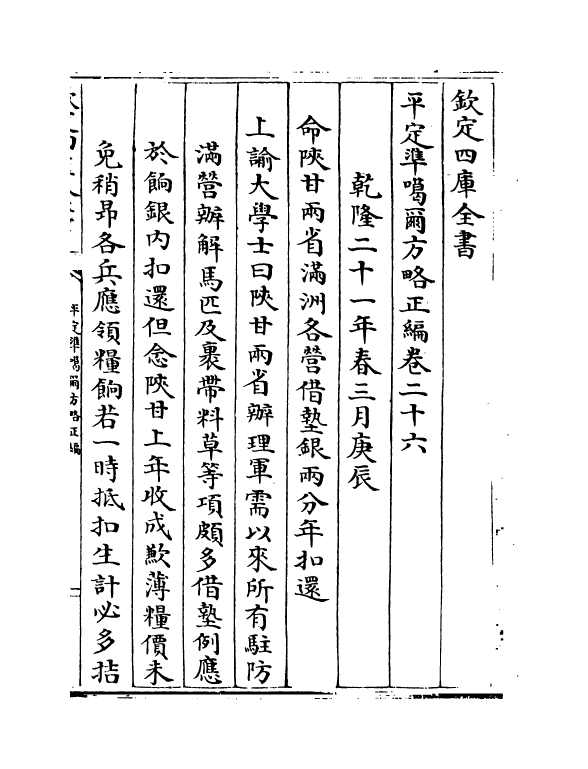 欽定四庫全書
平定準噶爾方略正編卷二十六
乾隆二十一年春三月庚辰
命陜甘兩省滿洲各營借墊銀兩分年扣還
上諭大學士曰陜甘兩省辦理軍需以來所有駐防
滿營辦解馬匹及裹帶料草等項頗多借墊例應
於餉銀内扣還但念陜甘上年收成歉薄糧價未
免稍昂各兵應領糧餉若一時抵扣生計必多拮
平定準噶爾方略正編